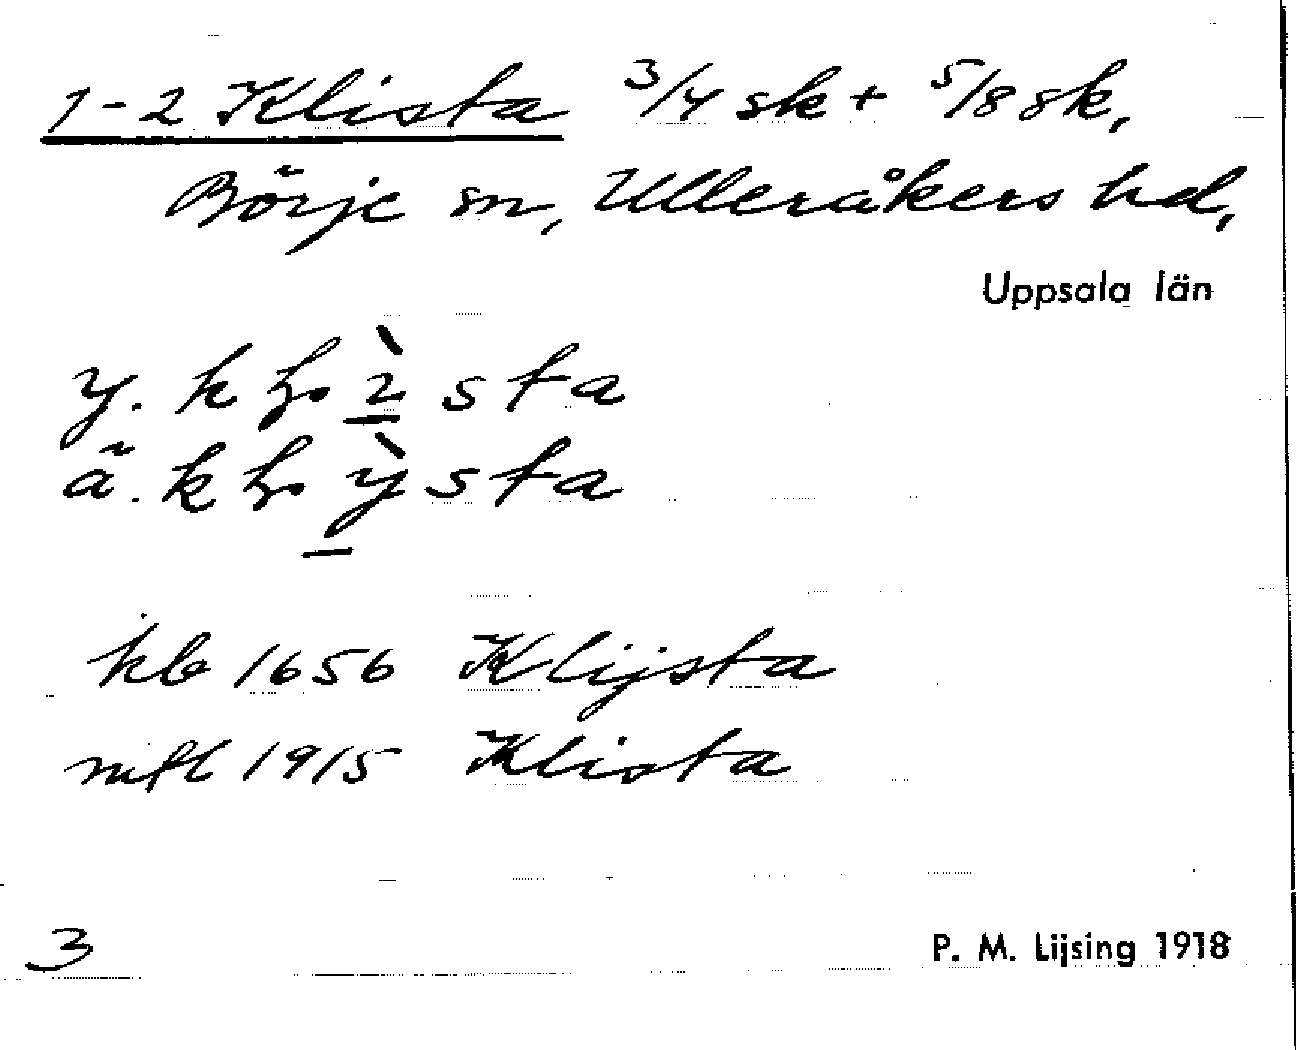 1-2 Klista 3/4 sk + 5/8 sk,
Börje sn, Ulleråkers hd,
Uppsala län
y. k
ä. k
kb 1656 Klijsta
mfl 1915 Klista
3
P. M. Lijsing 1918